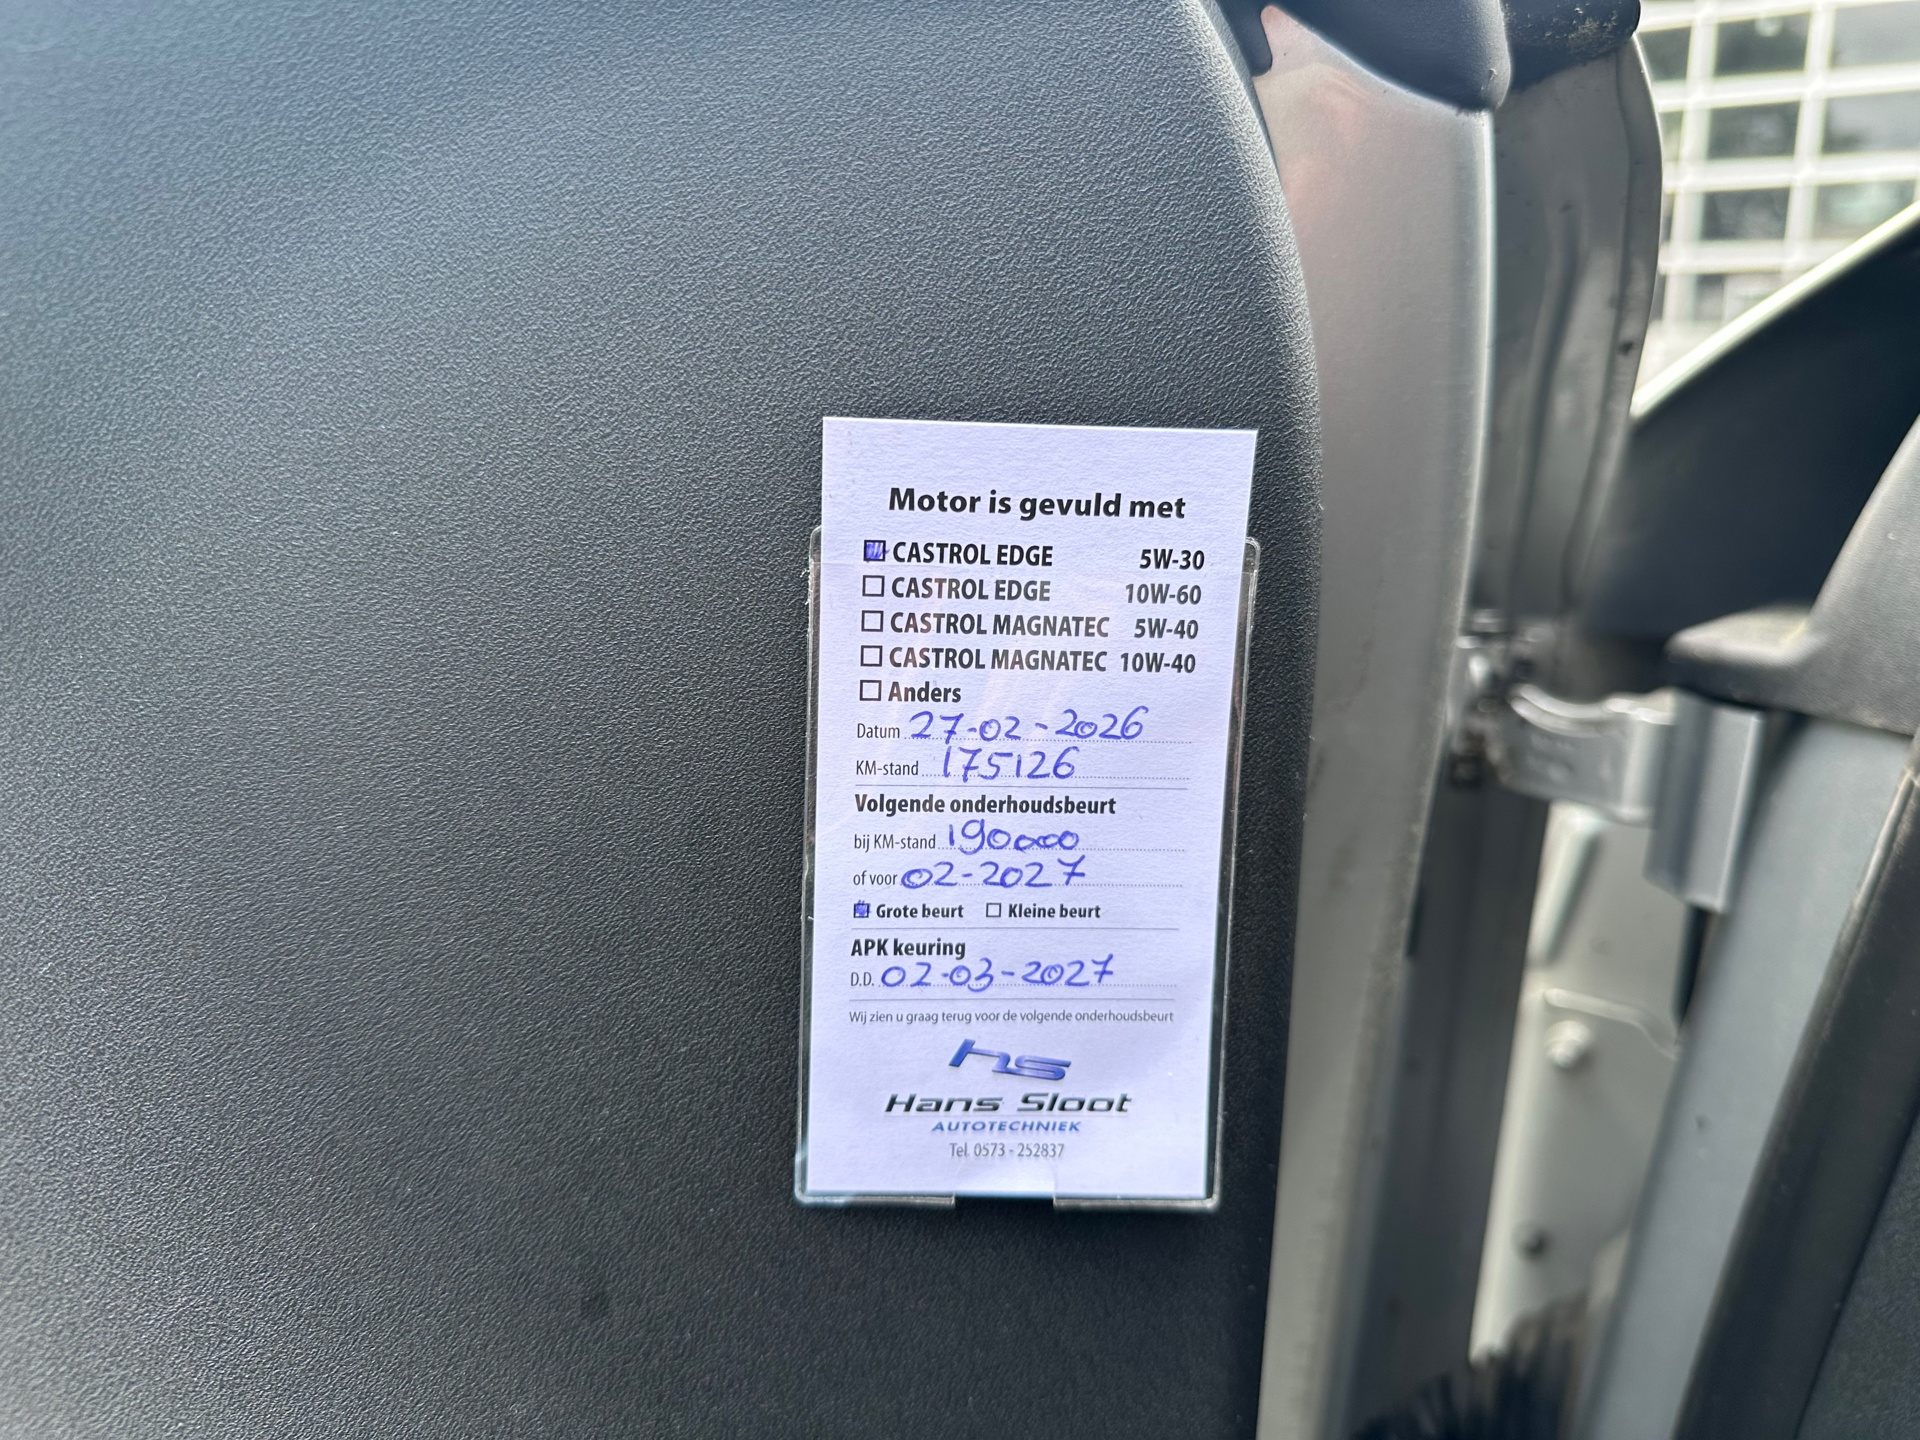 Motor is gevuld met
CASTROL EDGE 5W-30
CASTROL EDGE 10W-60
CASTROL MAGNATEC 5W-40
CASTROL MAGNATEC 10W-40
Anders
Datum 27-02-2026
KM-stand 175126
Volgende onderhoudsbeurt
bij KM-stand 190000
of voor 02-2027
Grote beurt Kleine beurt
APK keuring
D.D. 02-03-2027
Wij zien u graag terug voor de volgende onderhoudsbeurt
hs
Hans Sloot
AUTOTECHNIEK
Tel. 0573 - 252837